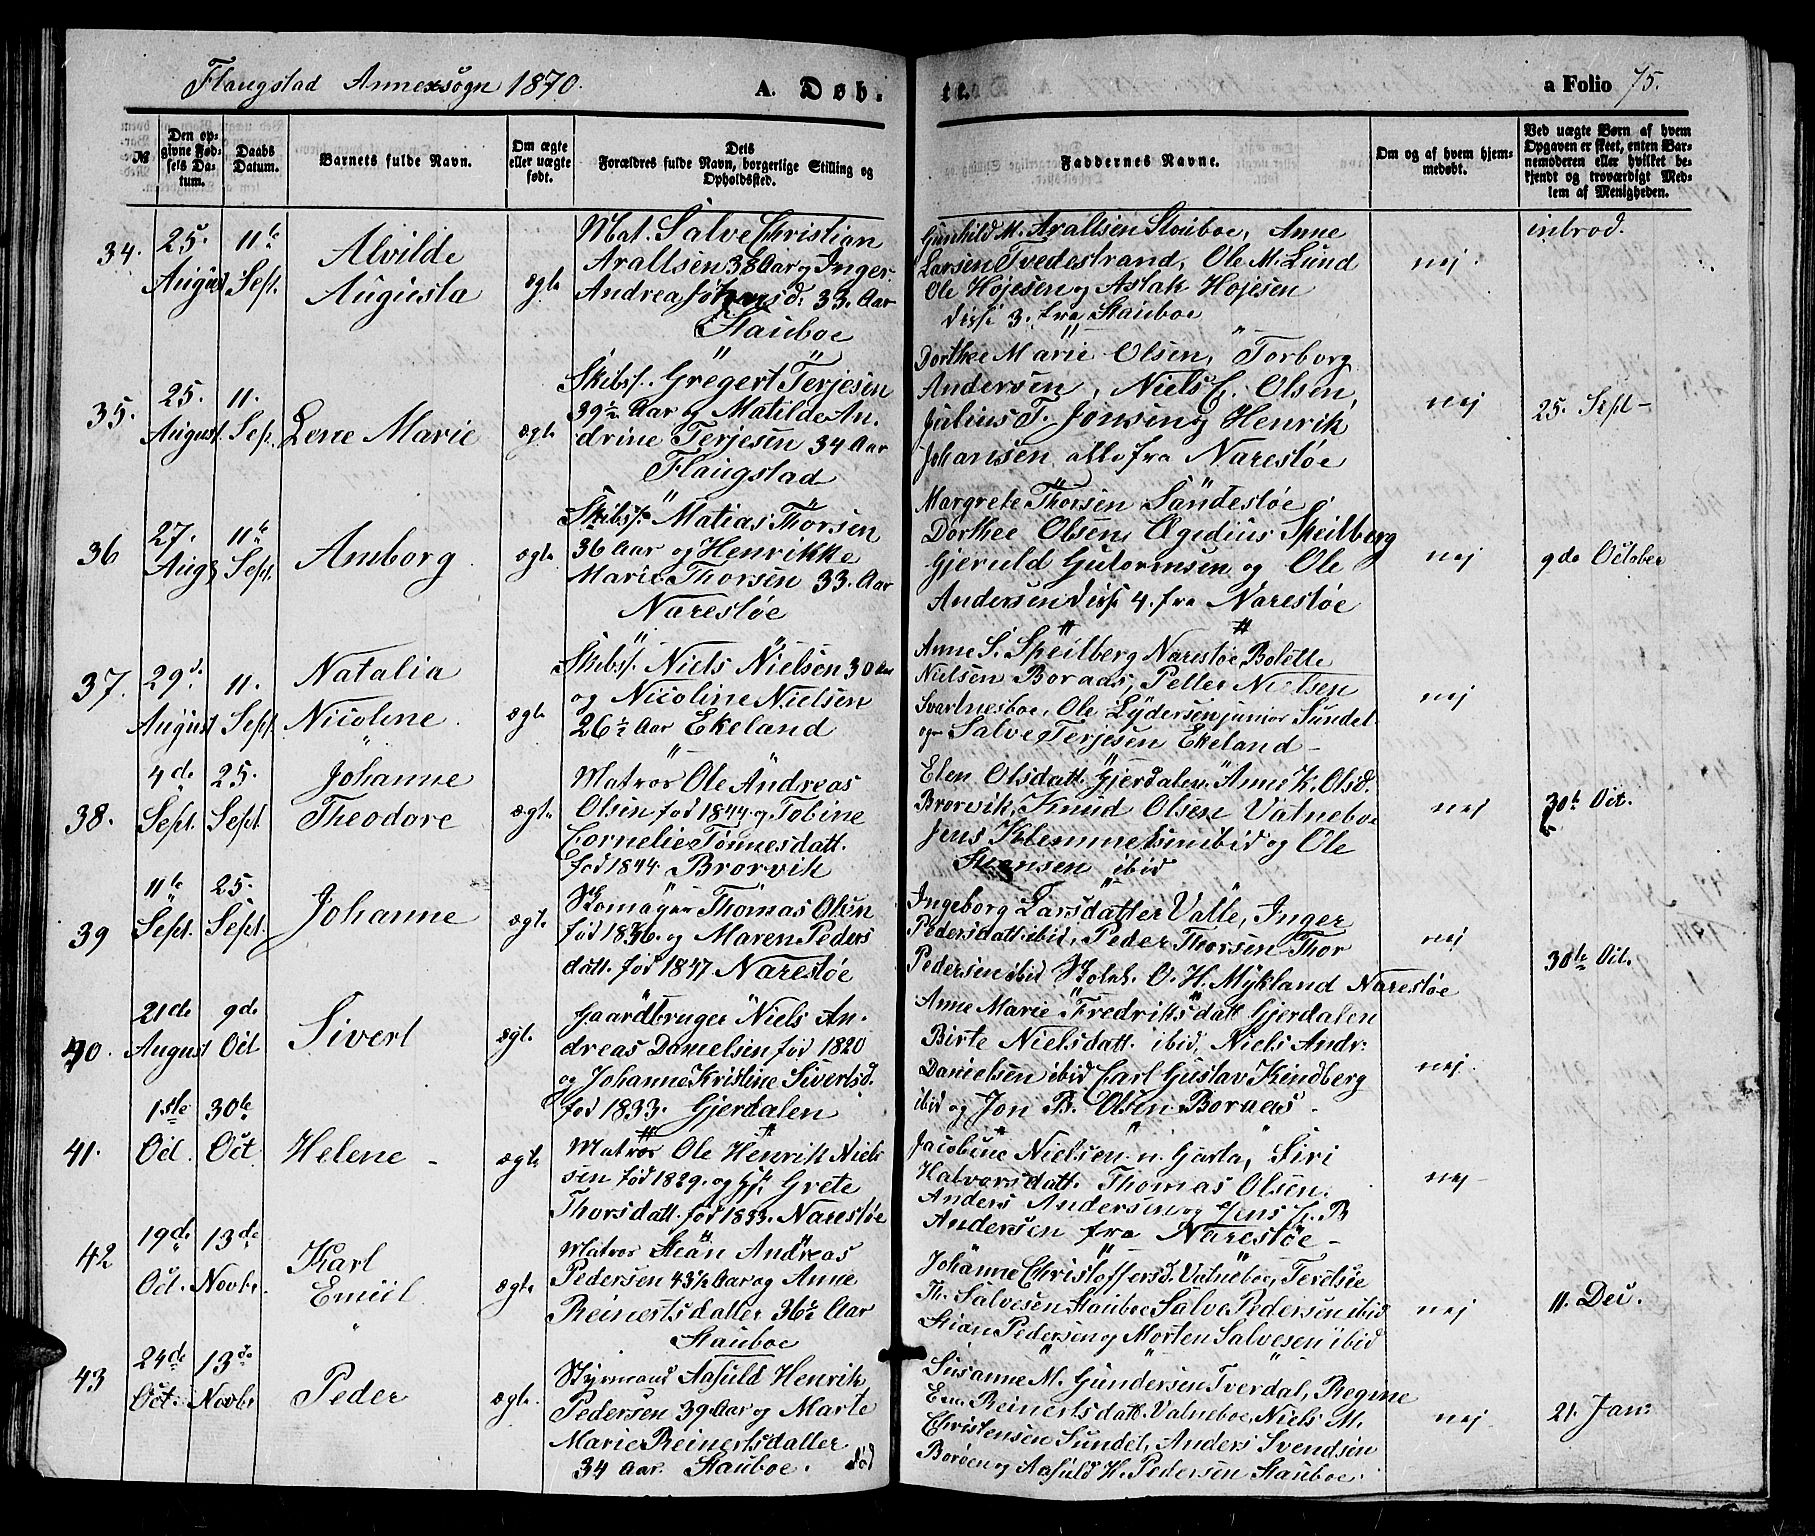 Flangstad Annexsogn 1870.
A. Døb.
te.
a Folio 75.
№
Den opgivne Fødsels Datum.
Daabs Datum.
Barnets fulde Navn.
Om ægte eller uægte født.
Dets Forældres fulde Navn, borgerlige Stilling og Opholdssted.
Faddernes Navne.
Om og af hvem hjemmedøbt.
Ved uægte Børn af hvem Opgaven er skeet, enten Barnemoderen eller hvilket bekjendt og troværdigt Medlem af Menigheden.
34.
25. August
11te Sept.
Alvilde
Augusta
ægte
Mat. Salve Christian
Arallsen 38 Aar og Inger
Andrea 33. Aar
Stauboe
Gunhild M. Arallsen Stauboe, Anne
Larsen Tvedestrand, Ole M. Lund
Ole Hojesen og Aslak Hojesen
disse 3. fra Stauboe
nej
introd.
35.
25. August
11. Sept.
Lene Marie
ægte
Skibsf. Gregert Terjesen
39½ Aar og Matilde An-
drine Terjesen 34 Aar
Flangstad
Dorthee Marie Olsen, Torborg
Andersen, Niels E. Olsen,
Julius T. Jonsen og Henrik
Johansen alle fra Narestøe
nej
25. Sept -
36
27. Aug
11te Sept.
Amborg
ægte
Skibsf. Matias Thorsen
36 Aar og Henrikke
Marie Thorsen 33. Aar
Narestøe
Margrete Thorsen Sandestøe
Dorthee Olsen, Ægedius Speilberg
Gjeruld Gutormsen og Ole
Andersen disse 4. fra Narestøe
nej
9de October
37.
29d. August
11. Sept.
Natalia
Nicoline
ægte
Skibsf. Niels Nielsen 30 Aar
og Nicoline Nielsen
26½ Aar Ekeland
Anne S. Speilberg Narestøe, Bolette
Nielsen Boraas, Peller Nielsen
Svartnesboe, Ole Lydersen junior Sundet
og Salve Terjesen Ekeland -
nej
38.
4de Sept.
25. Sept.
Johanne
Theodore
ægte
Matros Ole Andreas
Olsen fød 1844 og Tobine
Cornelie Tønnesdatt.
fød 1844 Brorvik
Elen Olsdatt. Gjerdalen, Anne K. Olsd.
Brorvik, Knud Olsen Vatneboe
Jens Klemmetsen ibid og Ole
ibid
nej
30te Oct.
39
11te Sept.
25. Sept.
Johanne
ægte
Skomager Thomas Olsen
fød 1836. og Maren Peders
datt. fød 1847 Narestøe
Ingeborg Larsdatter Valle, Inger
Pedersdatt. ibid, Peder Thorsen Thor
Pedersen ibid Skoleh. O. H. Mykland Narestøe
nej
30te Oct.
40.
21de August
9de Oct
Sivert
ægte
Gaardbruger Niels An-
dreas Danielsen fød 1820
og Johanne Kristine Sivertsd.
fød 1833. Gjerdalen
Anne Marie Fredriksdatt. Gjerdalen
Birte Nielsdatt. ibid, Niels Andr:
Danielsen ibid Carl Gustav Kindberg
ibid og Jon B. Olsen Boraas -
nej
41.
1ste Oct.
30te Oct
Helene -
ægte
Matros Ole Henrik Niels
sen fød 1829. og Hst Grete
Thorsdatt. fød 1833. Narestøe
Jacobine Nielsen n. Garta, Siri
Halvorsdatt. Thomas Olsen.
Anders Andersen og Jens L. B
Andersen fra Narestøe -
nej -
42
19de Oct.
13de Novbr.
Karl
Emiil
ægte
Matros Stian Andreas
Pedersen 43½ Aar og Anne
Reinertsdatter 36½ Aar
Stauboe
Johanne Christoffersd. Vatneboe, Terese
Th. Salvesen Stauboe Salve Pedersen ibid
Stian Pedersen og Morten Salvesen ibid
nej
11. Dec.
43
24de Oct.
13de Novbr.
Peder
ægte
Styrmand Aasuld Henrik
Pedersen 39 Aar og Marte
Marie Reinertsdatter
34 Aar. Stauboe. død
Susanne M. Gundersen Tverdal, Regine
Em. Reinertsdatt. Vatneboe, Niels M.
Christensen Sundet, Anders Svendsen
Borøen og Aasuld H. Pedersen Stauboe.
nej
21. Jan: